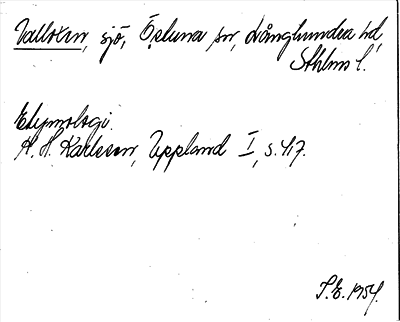 Valloxen, sjö, Ösluna sn, Långhundra hd,
Sthlms l.
Etymologi.
K. H. Karlsson, Uppland I, s. 417.
S.E. 1954.